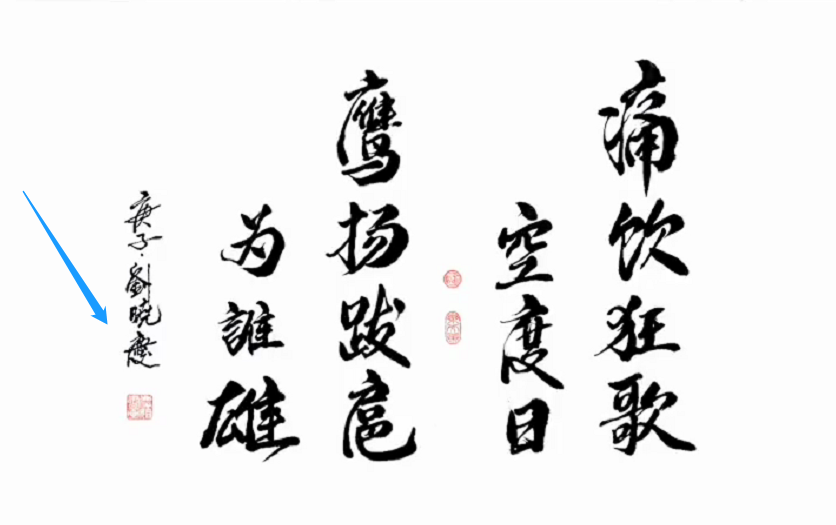 痛饮狂歌
空度日
鹰扬跋扈
为誰雄
庚子·劉曉慶